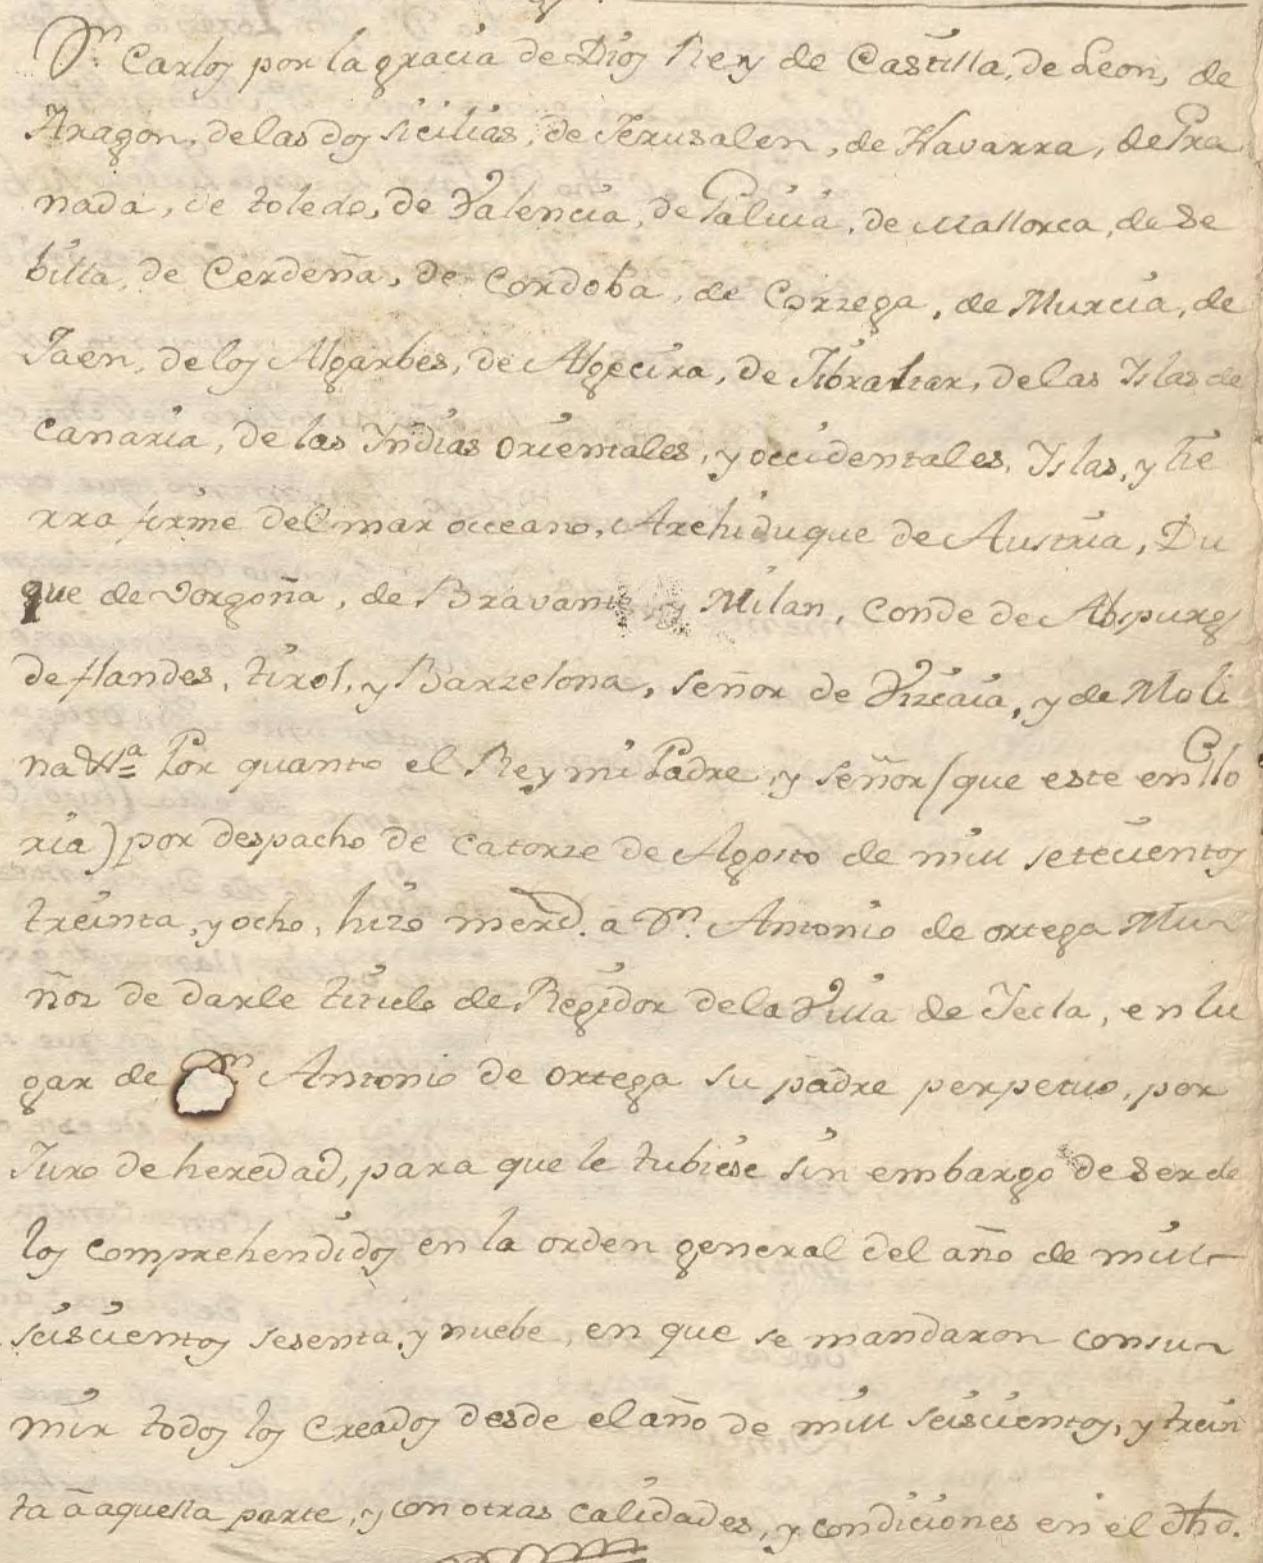 Dn. Carlos por la gracia de Dios Rey de Castilla, de Leon, de
Aragon, de las dos sicilias, de Jerusalen, de Navarra, de Gra
nada, de toledo, de Valencia, de Galicia, de Mallorca, de Se
billa, de Cerdeña, de Cordoba, de Corzega, de Murcia, de
Jaen, de los Algarbes, de Algecira, de Jibraltar, de las Yslas de
Canaria, de las Yndias orientales, y occidentales, Yslas, y tie
rra firme del mar occeano, Archiduque de Austria, Du
que de Vorgoña, de Bravante y Milan, Conde de Abspurg
de flandes, tirol, y Barzelona, señor de Vizcaia, y de Moli
na &a= Por quanto el Rey mi Padre, y señor (que este en Glo
ria) por despacho de Catorze de Agosto de mill setecientos
treinta, y ocho, hizo merd. a Dn. Antonio de ortega Mu
ñoz de darle titulo de Regidor de la Villa de Yecla, en lu
gar de Dn Antonio de ortega su padre perpetuo, por
Juro de heredad, para que le tubiese sin embargo de ser de
los comprehendidos en la orden general del año de mill
seiscientos sesenta, y nuebe, en que se mandaron consu
mir todos los creados desde el año de mill seiscientos, y trein
ta â aquella parte, y con otras calidades, y condiciones en el dho.